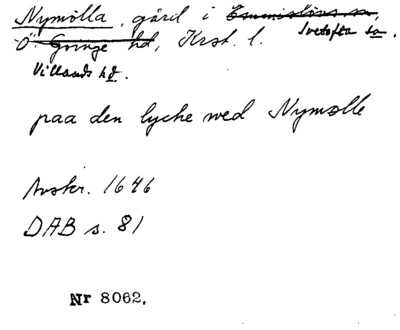 Nymølla, gård i Emmislövs sn,
Ivetofta sn.
Ö. Göinge hd, Krst. l.
Villands hd.
paa den lycke wed Nymølle
Avskr. 1646
DAB s. 81
Nr 8062.